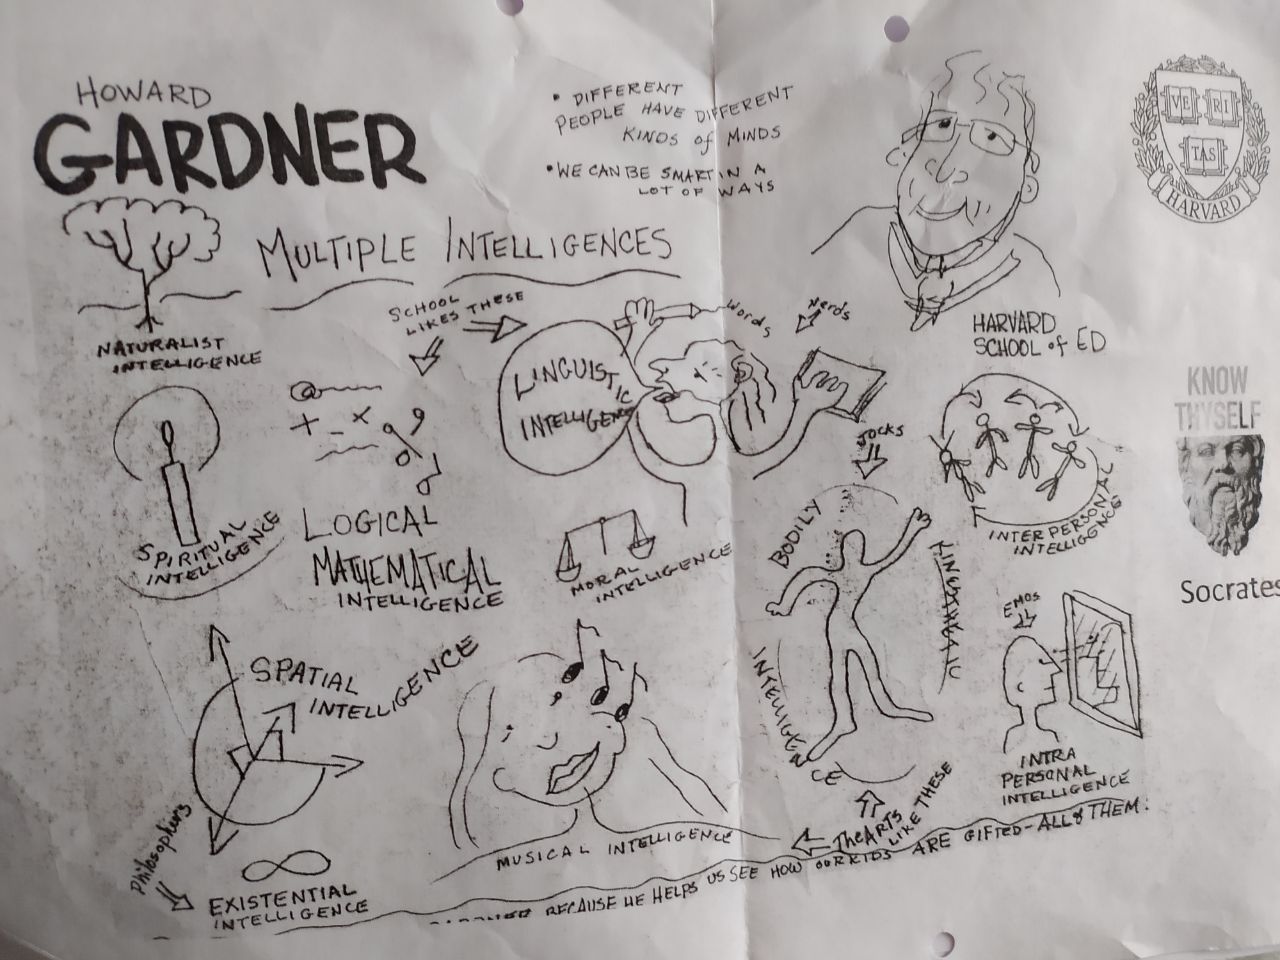 HOWARD
GARDNER
• DIFFERENT
PEOPLE HAVE DIFFERENT
KINDS of MINDS
• WE CAN BE SMART IN A
LOT OF WAYS
VE RI
TAS
HARVARD
MULTIPLE INTELLIGENCES
NATURALIST
INTELLIGENCE
SCHOOL
LIKES THESE
LINGUISTIC
INTELLIGENCE
Words
Nerds
HARVARD
SCHOOL of ED
KNOW
THYSELF
Socrates
SPIRITUAL
INTELLIGENCE
LOGICAL
MATHEMATICAL
INTELLIGENCE
MORAL
INTELLIGENCE
JOCKS
BODILY
KINESTHETIC
INTELLIGENCE
INTERPERSONAL
INTELLIGENCE
EMOS
INTRA
PERSONAL
INTELLIGENCE
SPATIAL
INTELLIGENCE
MUSICAL INTELLIGENCE
The ARTS
LIKE THESE
Philosophers
EXISTENTIAL
INTELLIGENCE
GARDNER BECAUSE HE HELPS US SEE HOW OUR KIDS ARE GIFTED-ALL of THEM!